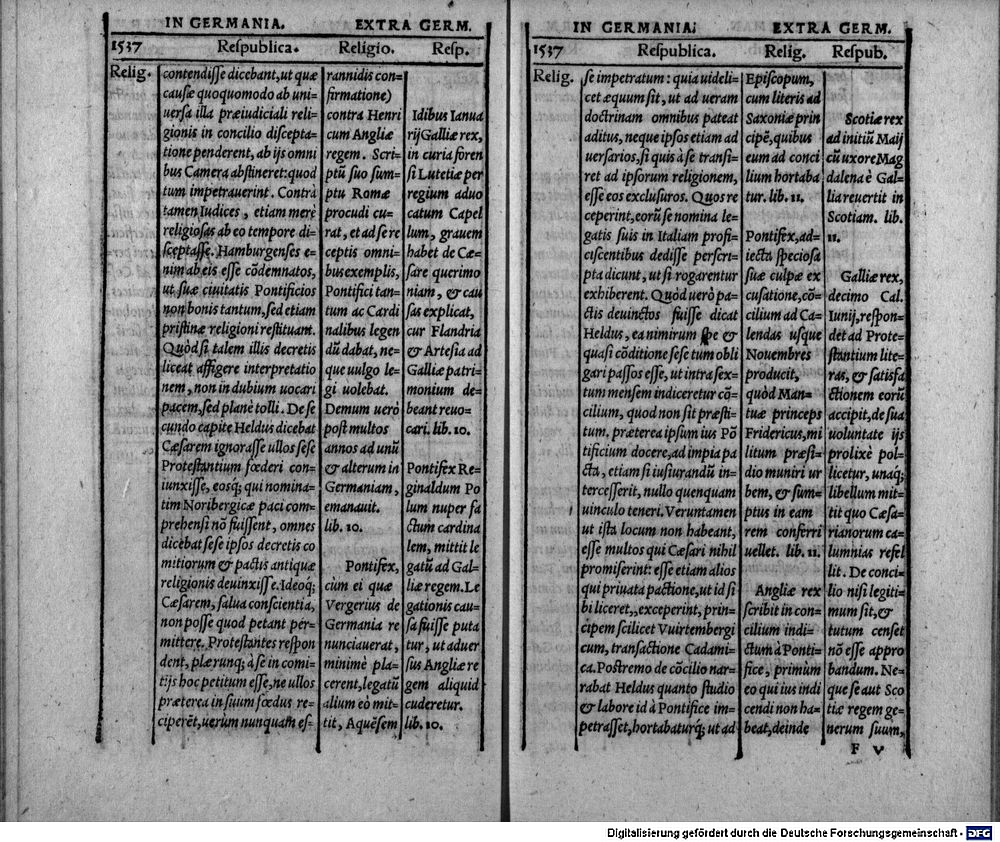 IN GERMANIA. EXTRA GERM.
1537 Respublica. Religio. Resp.
Relig.
contendisse dicebant, ut quæ
causæ quoquomodo ab uni-
uersa illa præiudiciali reli-
gionis in concilio discepta-
tione penderent, ab ijs omni
bus Camera abstineret: quod
tum impetrauerint. Contrà
tamen Iudices, etiam merè
religiosas ab eo tempore di-
sceptasse. Hamburgenses e-
nim ab eis esse cōdemnatos,
ut suæ ciuitatis Pontificios
non bonis tantum, sed etiam
pristinæ religioni restituant.
Quòd si talem illis decretis
liceat affigere interpretatio
nem, non in dubium uocari
pacem, sed planè tolli. De se
cundo capite Heldus dicebat
Cæsarem ignorasse ullos sese
Protestantium fœderi con-
iunxisse, eosq; qui nomina-
tim Noribergicæ paci com-
prehensi nō fuissent, omnes
dicebāt sese ipsos decretis co
mitiorum & pactis antiquæ
religionis deuinxisse. Ideoq;
Cæsarem, salua conscientia,
non posse quod petant per-
mittere. Protestantes respon
dent, plærunq; à se in comi-
tijs hoc petitum esse, ne ullos
præterea in suum fœdus re-
ciperēt, uerùm nunquam es-
rannidis con-
firmatione)
contra Henri
cum Angliæ
regem. Scri-
ptū suo sum-
ptu Romæ
procudi cu-
rat, et ad se re
ceptis omni-
bus exemplis,
Pontifici tan-
tum ac Cardi
nalibus legen
dū dabat, ne-
que uulgo le-
gi uolebat.
Demum uerò
post multos
annos ad unū
& alterum in
Germaniam,
emanauit.
lib. 10.
Pontifex,
cùm ei quæ
Vergerius de
Germania re
nunciauerat,
minimè pla-
cerent, legatū
alium eò mit-
tit, Aquēsem
Idibus Ianua
rij Galliæ rex,
in curia foren
si Lutetiæ per
regium aduo
catum Capel
lum, grauem
habet de Cæ-
sare querimo
niam, & cau
sas explicat,
cur Flandria
& Artesia ad
Galliæ patri-
monium de-
beant reuo-
cari. lib. 10.
Pontifex Re-
ginaldum Po
lum nuper fa
ctum cardina
lem, mittit le
gatū ad Gal-
liæ regem. Le
gationis cau-
sa fuisse puta
tur, ut aduer
sus Angliæ re
gem aliquid
cuderetur.
lib. 10.
IN GERMANIA. EXTRA GERM.
1537 Respublica. Relig. Respub.
Relig.
se impetratum: quia uideli-
cet æquum sit, ut ad ueram
doctrinam omnibus pateat
aditus, neque ipsos etiam ad
uersarios, si quis à se transi-
ret ad ipsorum religionem,
esse eos exclusuros. Quos re
ceperint, eorū se nomina le-
gatis suis in Italiam profi-
ciscentibus dedisse perscri-
pta dicunt, ut si rogarentur
exhiberent. Quòd uerò pa-
ctis deuinctos fuisse dicat
Heldus, ea nimirum spe &
quasi cōditione sese tum obli
gari passos esse, ut intra sex-
tum mensem indiceretur cō-
cilium, quod non sit præsti-
tum. præterea ipsum ius Pō
tificium docere, ad impia pa
cta, etiam si iusiurandū in-
tercesserit, nullo quenquam
uinculo teneri. Veruntamen
ut ista locum non habeant,
esse multos qui Cæsari nihil
promiserint: esse etiam alios
qui priuata pactione, ut id si
bi liceret, exceperint, prin-
cipem scilicet Vuirtembergi
cum, transactione Cadami-
ca. Postremo de cōcilio nar-
rabat Heldus quanto studio
& labore id à Pontifice im-
petrasset, hortabaturq; ut ad
Episcopum,
cum literis ad
Saxoniæ prin
cipē, quibus
eum ad conci
lium hortaba
tur. lib. 11.
Pontifex, ad-
iecta speciosa
suæ culpæ ex
cusatione, cō-
cilium ad Ca-
lendas usque
Nouembres
producit,
quòd Man-
tuæ princeps
Fridericus, mi
litum præsi-
dio muniri ur
bem, & sum-
ptus in eam
rem conferri
uellet. lib. 11.
Angliæ rex
scribit in con-
cilium indi-
ctum à Ponti-
fice, primùm
eo qui ius indi
cendi non ha-
beat, deinde
Scotiæ rex
ad initiū Maij
cū uxore Mag
dalena è Gal-
lia reuertit in
Scotiam. lib.
11.
Galliæ rex,
decimo Cal.
Iunij, respon-
det ad Prote-
stantium lite-
ras, & satisfa
ctionem eorū
accipit, de sua
uoluntate ijs
prolixè pol-
licetur, unaq;
libellum mit-
tit quo Cæsa-
rianorum ca-
lumnias refel
lit. De conci-
lio nisi legiti-
mum sit, &
tutum censet
nō esse appro
bandum. Ne-
que se aut Sco
tiæ regem ge-
nerum suum,
F v
Digitalisierung gefördert durch die Deutsche Forschungsgemeinschaft - DFG